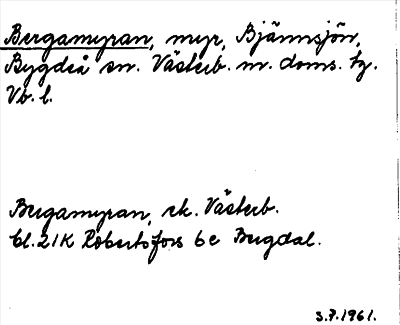 Bergamyran, myr, Bjännsjön,
Bygdeå sn. Västerb. m. doms. tg.
Vb. l.
Bergamyran, ek. Västerb.
bl. 21K Robertsfors 6e Bergdal.
3.7.1961.